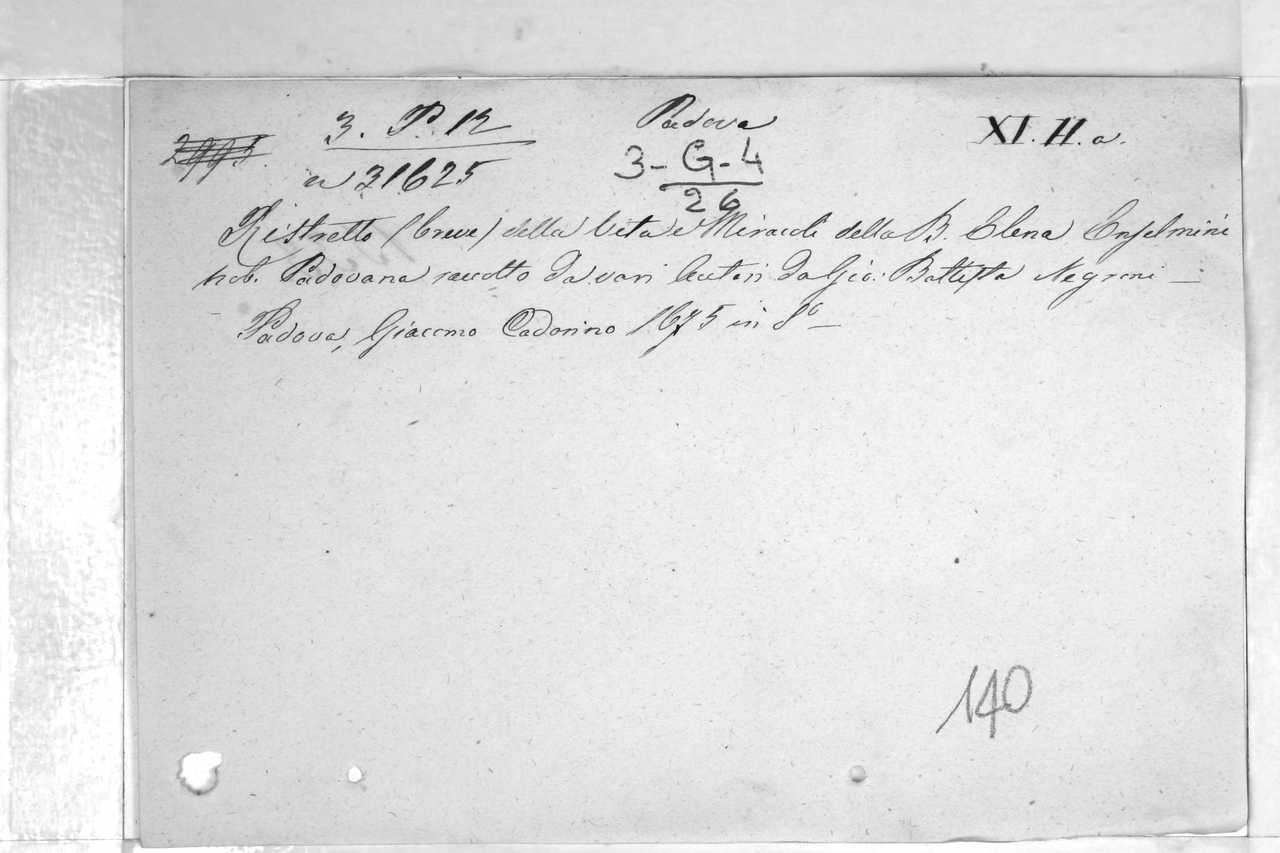 3. P. 12 Padova XI. H. a.
a 31625 3-G-4
26
Ristretto (breve) della Vita e Miracoli della B. Elena Enselmini
nob. Padovana raccolto da vari Autori da Gio: Battista Negroni —
Padova, Giacomo Cadorino 1675 in 8° —
140